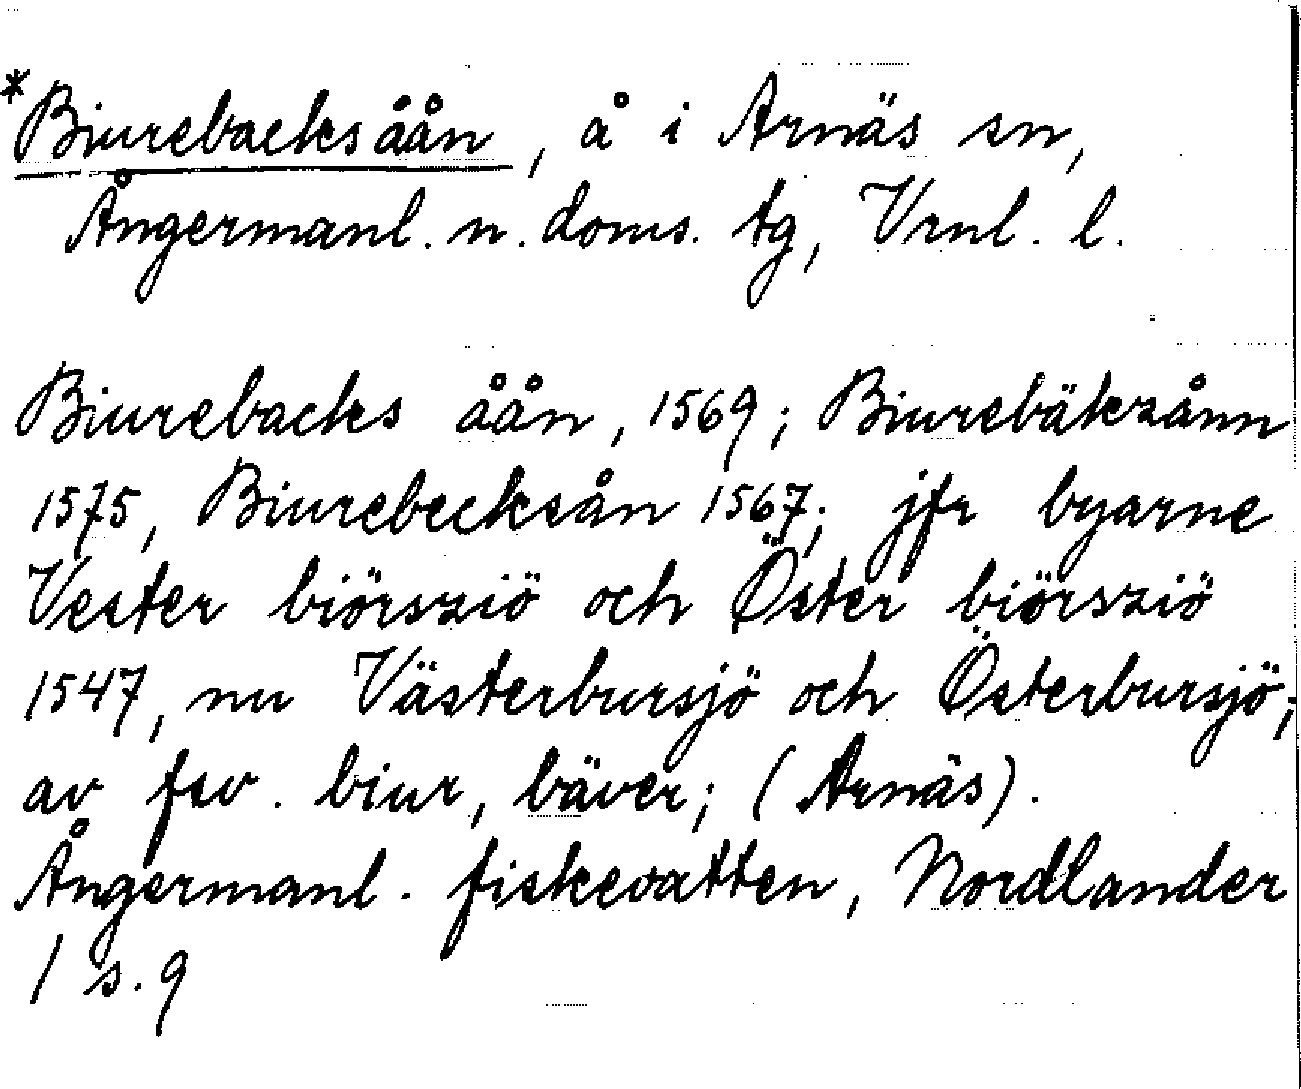 *Biurebacksåån, å i Arnäs sn,
Ångermanl. n. doms. tg, Vrnl. l.
Biurebacks åån, 1569; Biurebäkzånn
1575, Biurebecksån 1567; jfr byarne
Vester biörsziö och Öster biörsziö
1547, nu Västerbursjö och Österbursjö;
av fsv. biur, bäver; (Arnäs).
Ångermanl. fiskevatten, Nordlander
1 s. 9